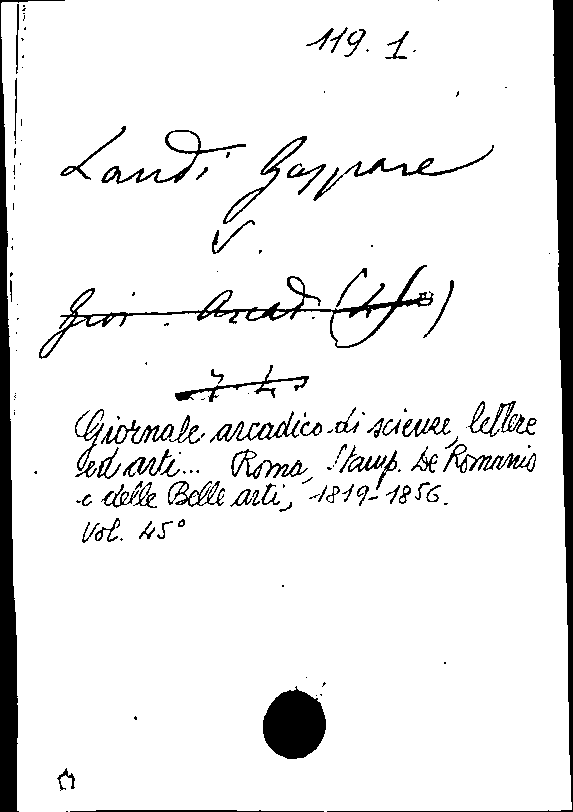 119. 1.
Landi Gaspare
V.
Gior. Arcad. (45)
7. L.
Giornale arcadico di scienze, lettere
ed arti... Roma, Stamp. De Romanis
e delle Belle arti, 1819-1856.
Vol. 45°